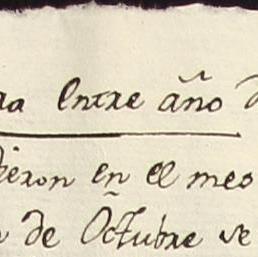 ra Entre año d
dieron en el mes
n de Octubre se